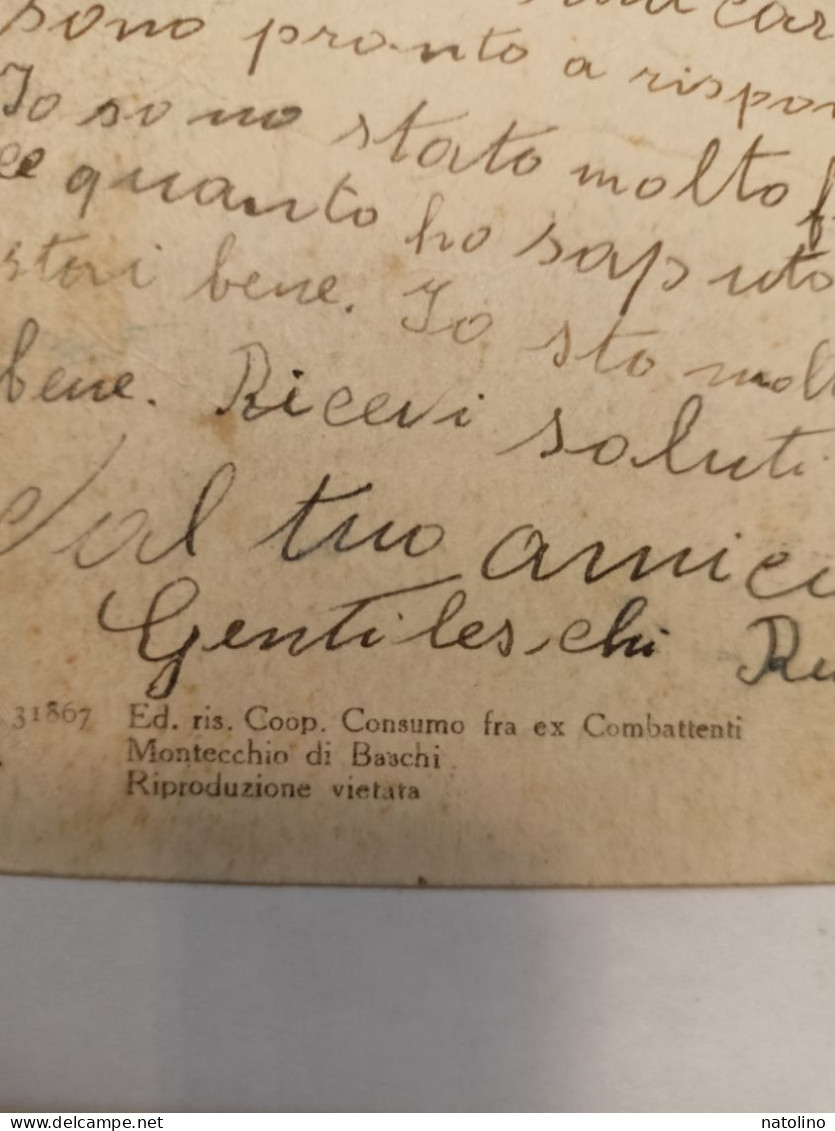 sono pronto a rispon
Io sono stato molto f
ce quanto ho saputo
stai bene. Io sto molt
bene. Ricevi saluti
dal tuo amico
Gentileschi Re
31867 Ed. ris. Coop. Consumo fra ex Combattenti
Montecchio di Baschi
Riproduzione vietata
delcampe.net
natolino